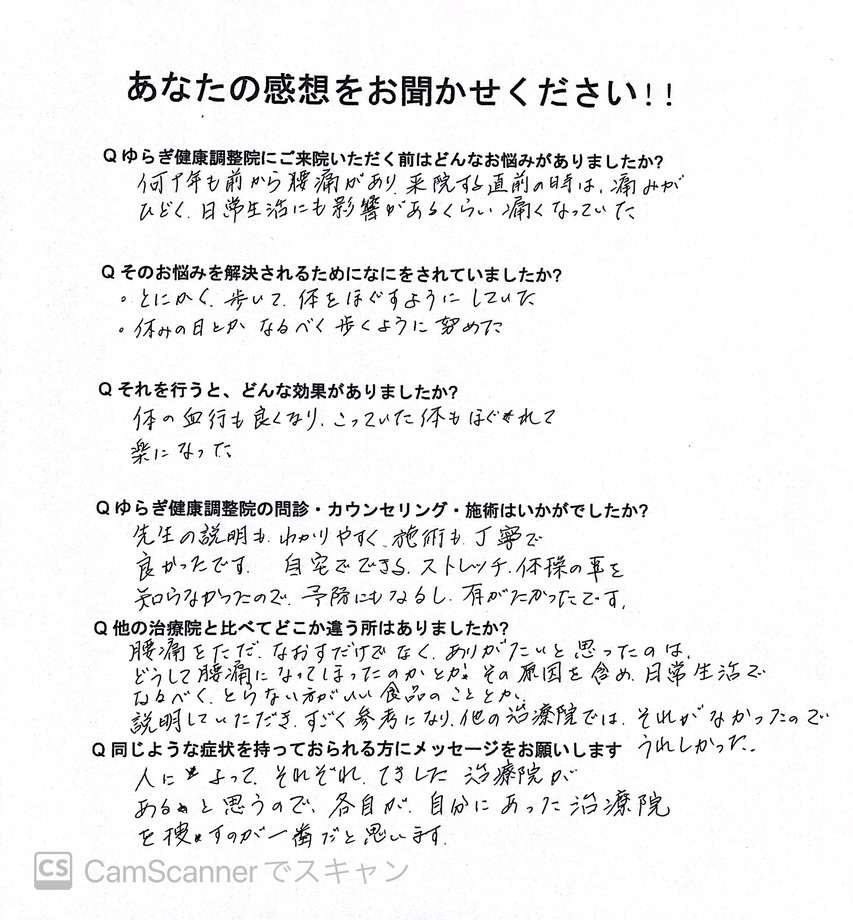 あなたの感想をお聞かせください!!
Q ゆらぎ健康調整院にご来院いただく前はどんなお悩みがありましたか?
何十年も前から腰痛があり、来院する直前の時は、痛みが
ひどく、日常生活にも影響があるくらい痛くなっていた
Q そのお悩みを解決されるためになにをされていましたか?
・とにかく、歩いて、体をほぐすようにしていた
・休みの日とかなるべく歩くように努めた
Q それを行うと、どんな効果がありましたか?
体の血行も良くなり、こっていた体もほぐれて
楽になった
Q ゆらぎ健康調整院の問診・カウンセリング・施術はいかがでしたか?
先生の説明も、わかりやすく、施術も、丁寧で
良かったです。 自宅でできる、ストレッチ、体操の事を
知らなかったので、予防にもなるし、有がたかったです。
Q 他の治療院と比べてどこか違う所はありましたか?
腰痛をただ、なおすだけでなく、ありがたいと思ったのは、
どうして腰痛になってしまったのかとか、その原因を含め、日常生活で
なるべく、とらない方がいい食品のこととか、
説明していただき、すごく参考になり、他の治療院では、それがなかったので
うれしかった。
Q 同じような症状を持っておられる方にメッセージをお願いします
人によって、それぞれ、てきした治療院が
あると思うので、各自が、自分にあった治療院
を捜すのが一番だと思います。
CS CamScannerでスキャン